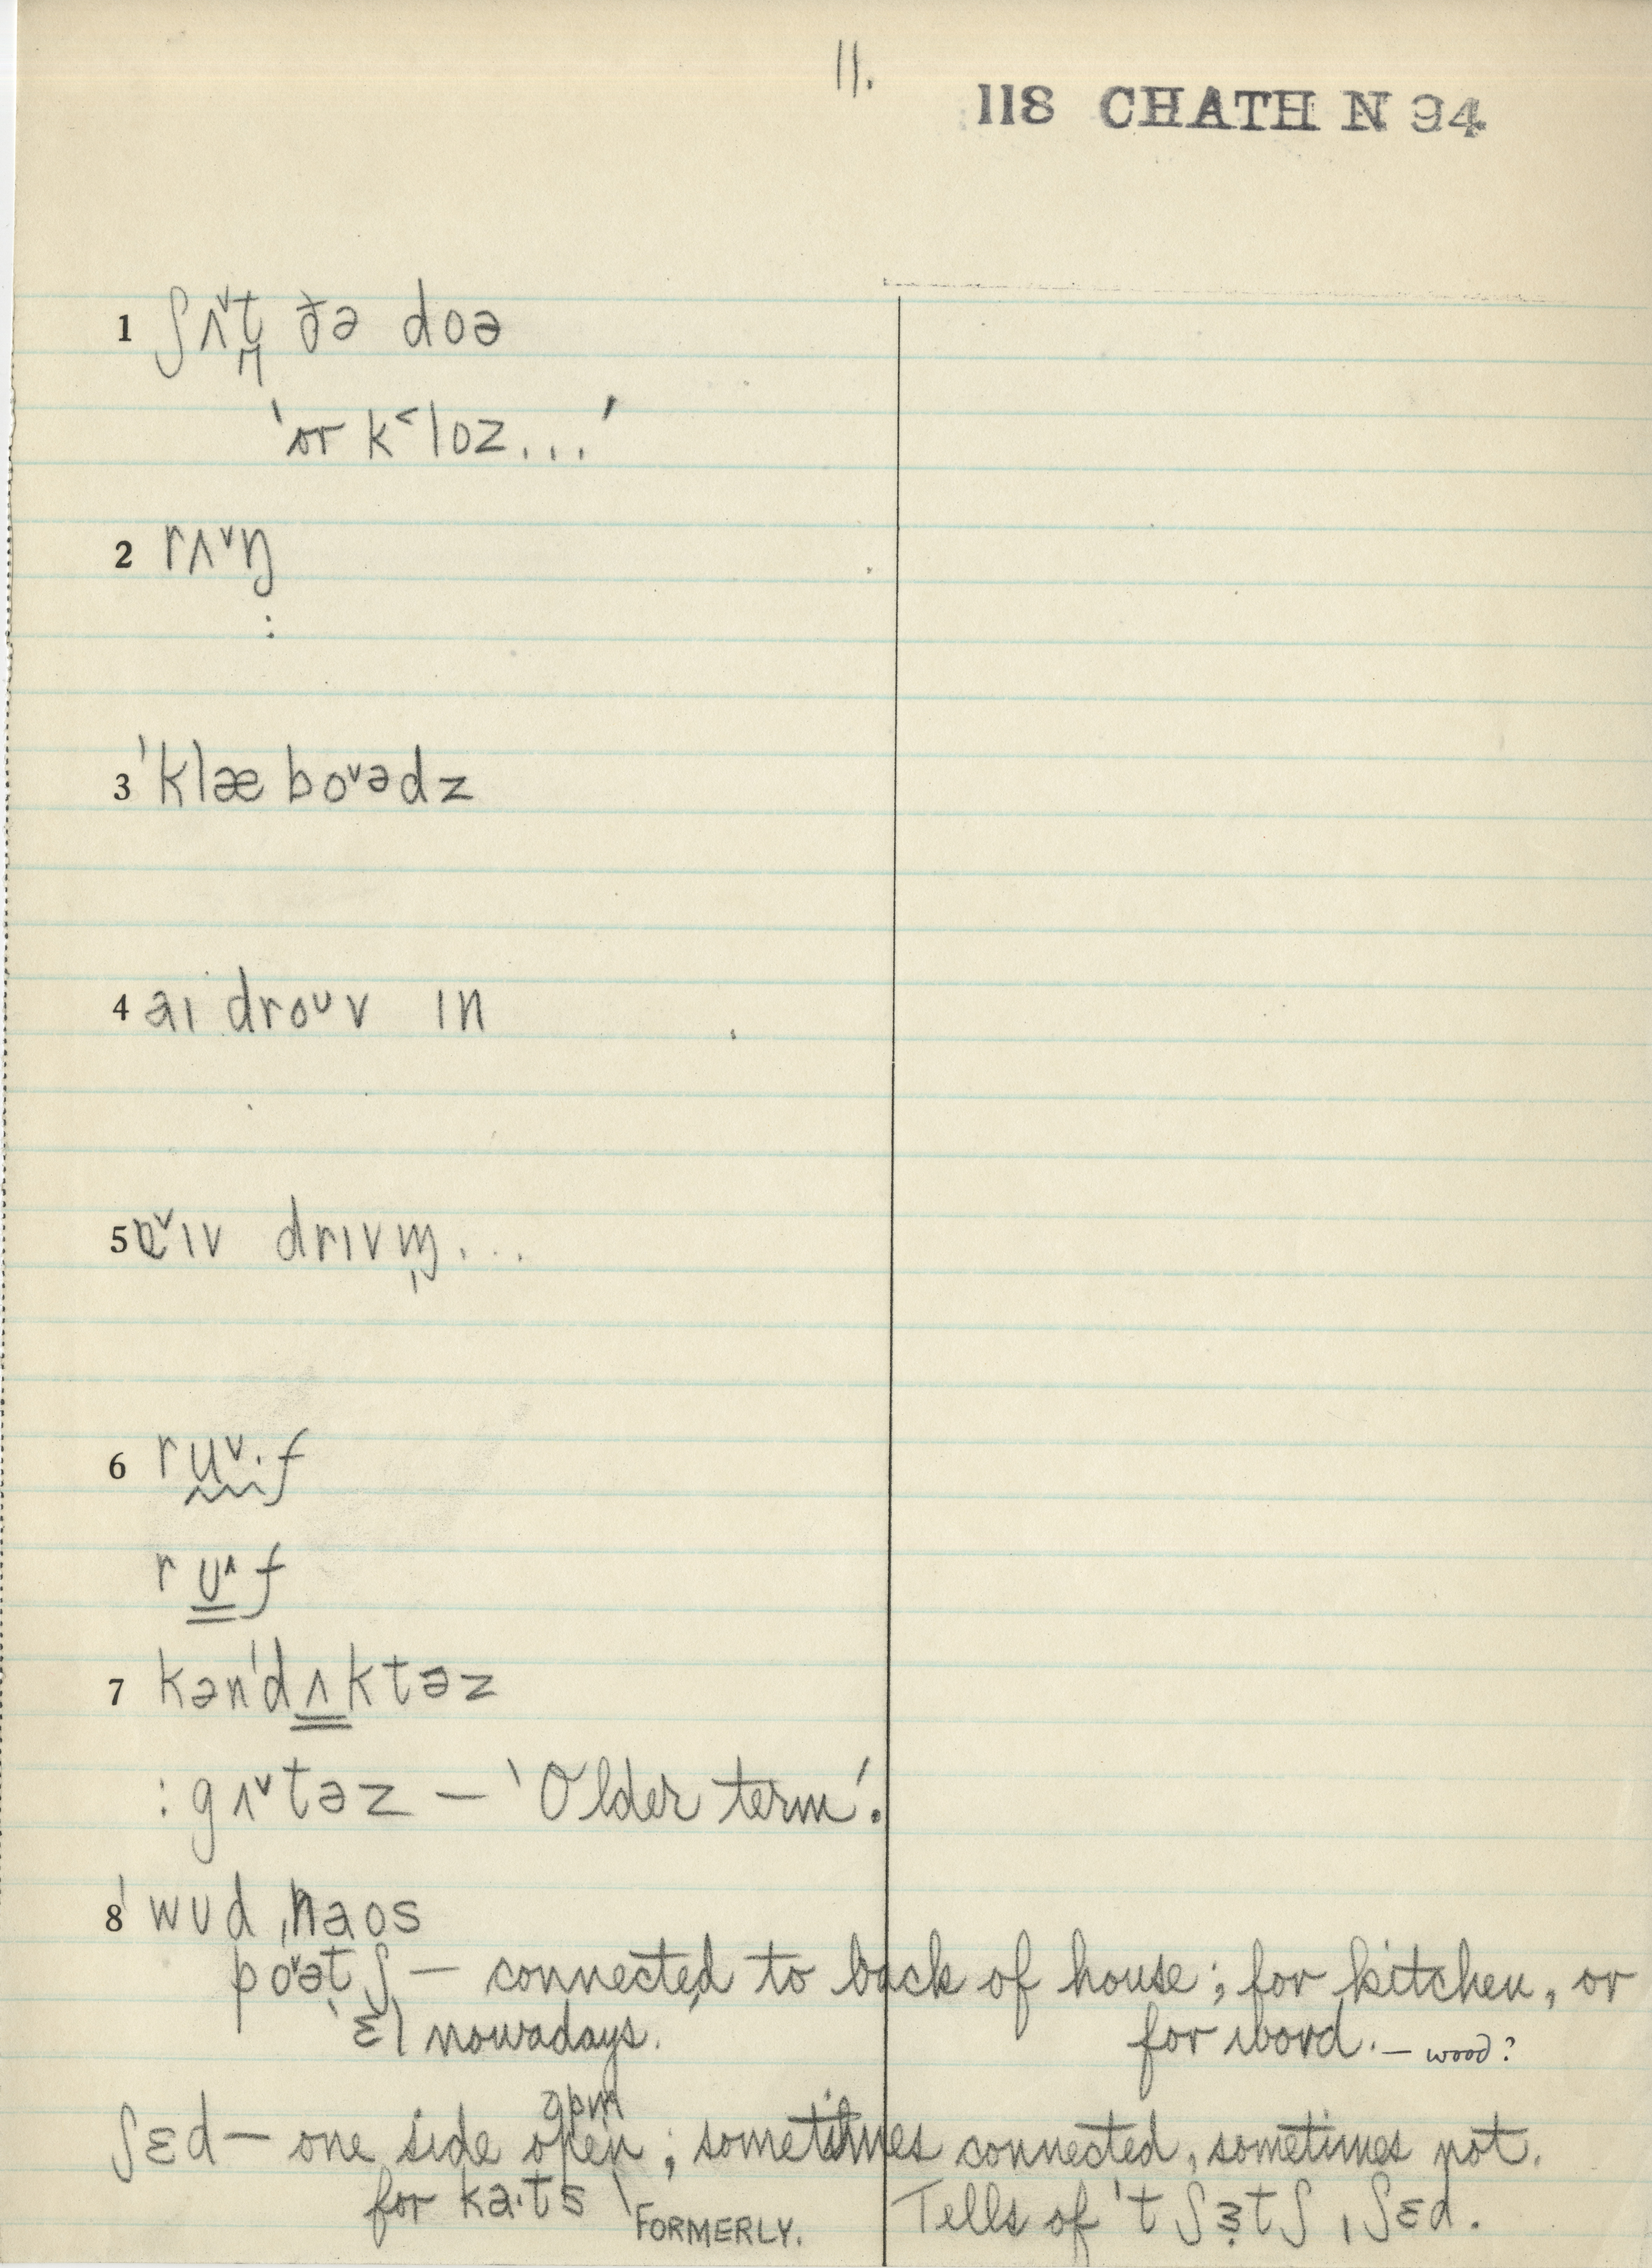 11.
118 CHATH N 94
1 ʃʌ˅t̪ ðə doə
'or k˂loz...'
2 rʌ˅ŋ
:
3 ˈklæ bo˅ədz
4 aɪ droᴜv ɪn
5 ɐ˅ɪv drɪvm̩...
6 ru˅·f
rᴜ˄f
7 kənˈdʌktəz
: gʌ˅təz — 'Older term'.
8 ˈwᴜdˌhaos
po˅ətʃ — connected to back of house; for kitchen, or
'ɛl nowadays.' for wood. — wood?
opm
ʃɛd — one side open; sometimes connected, sometimes not.
for ka·ts \ FORMERLY. Tells of ˈtʃɜtʃˌʃɛd.